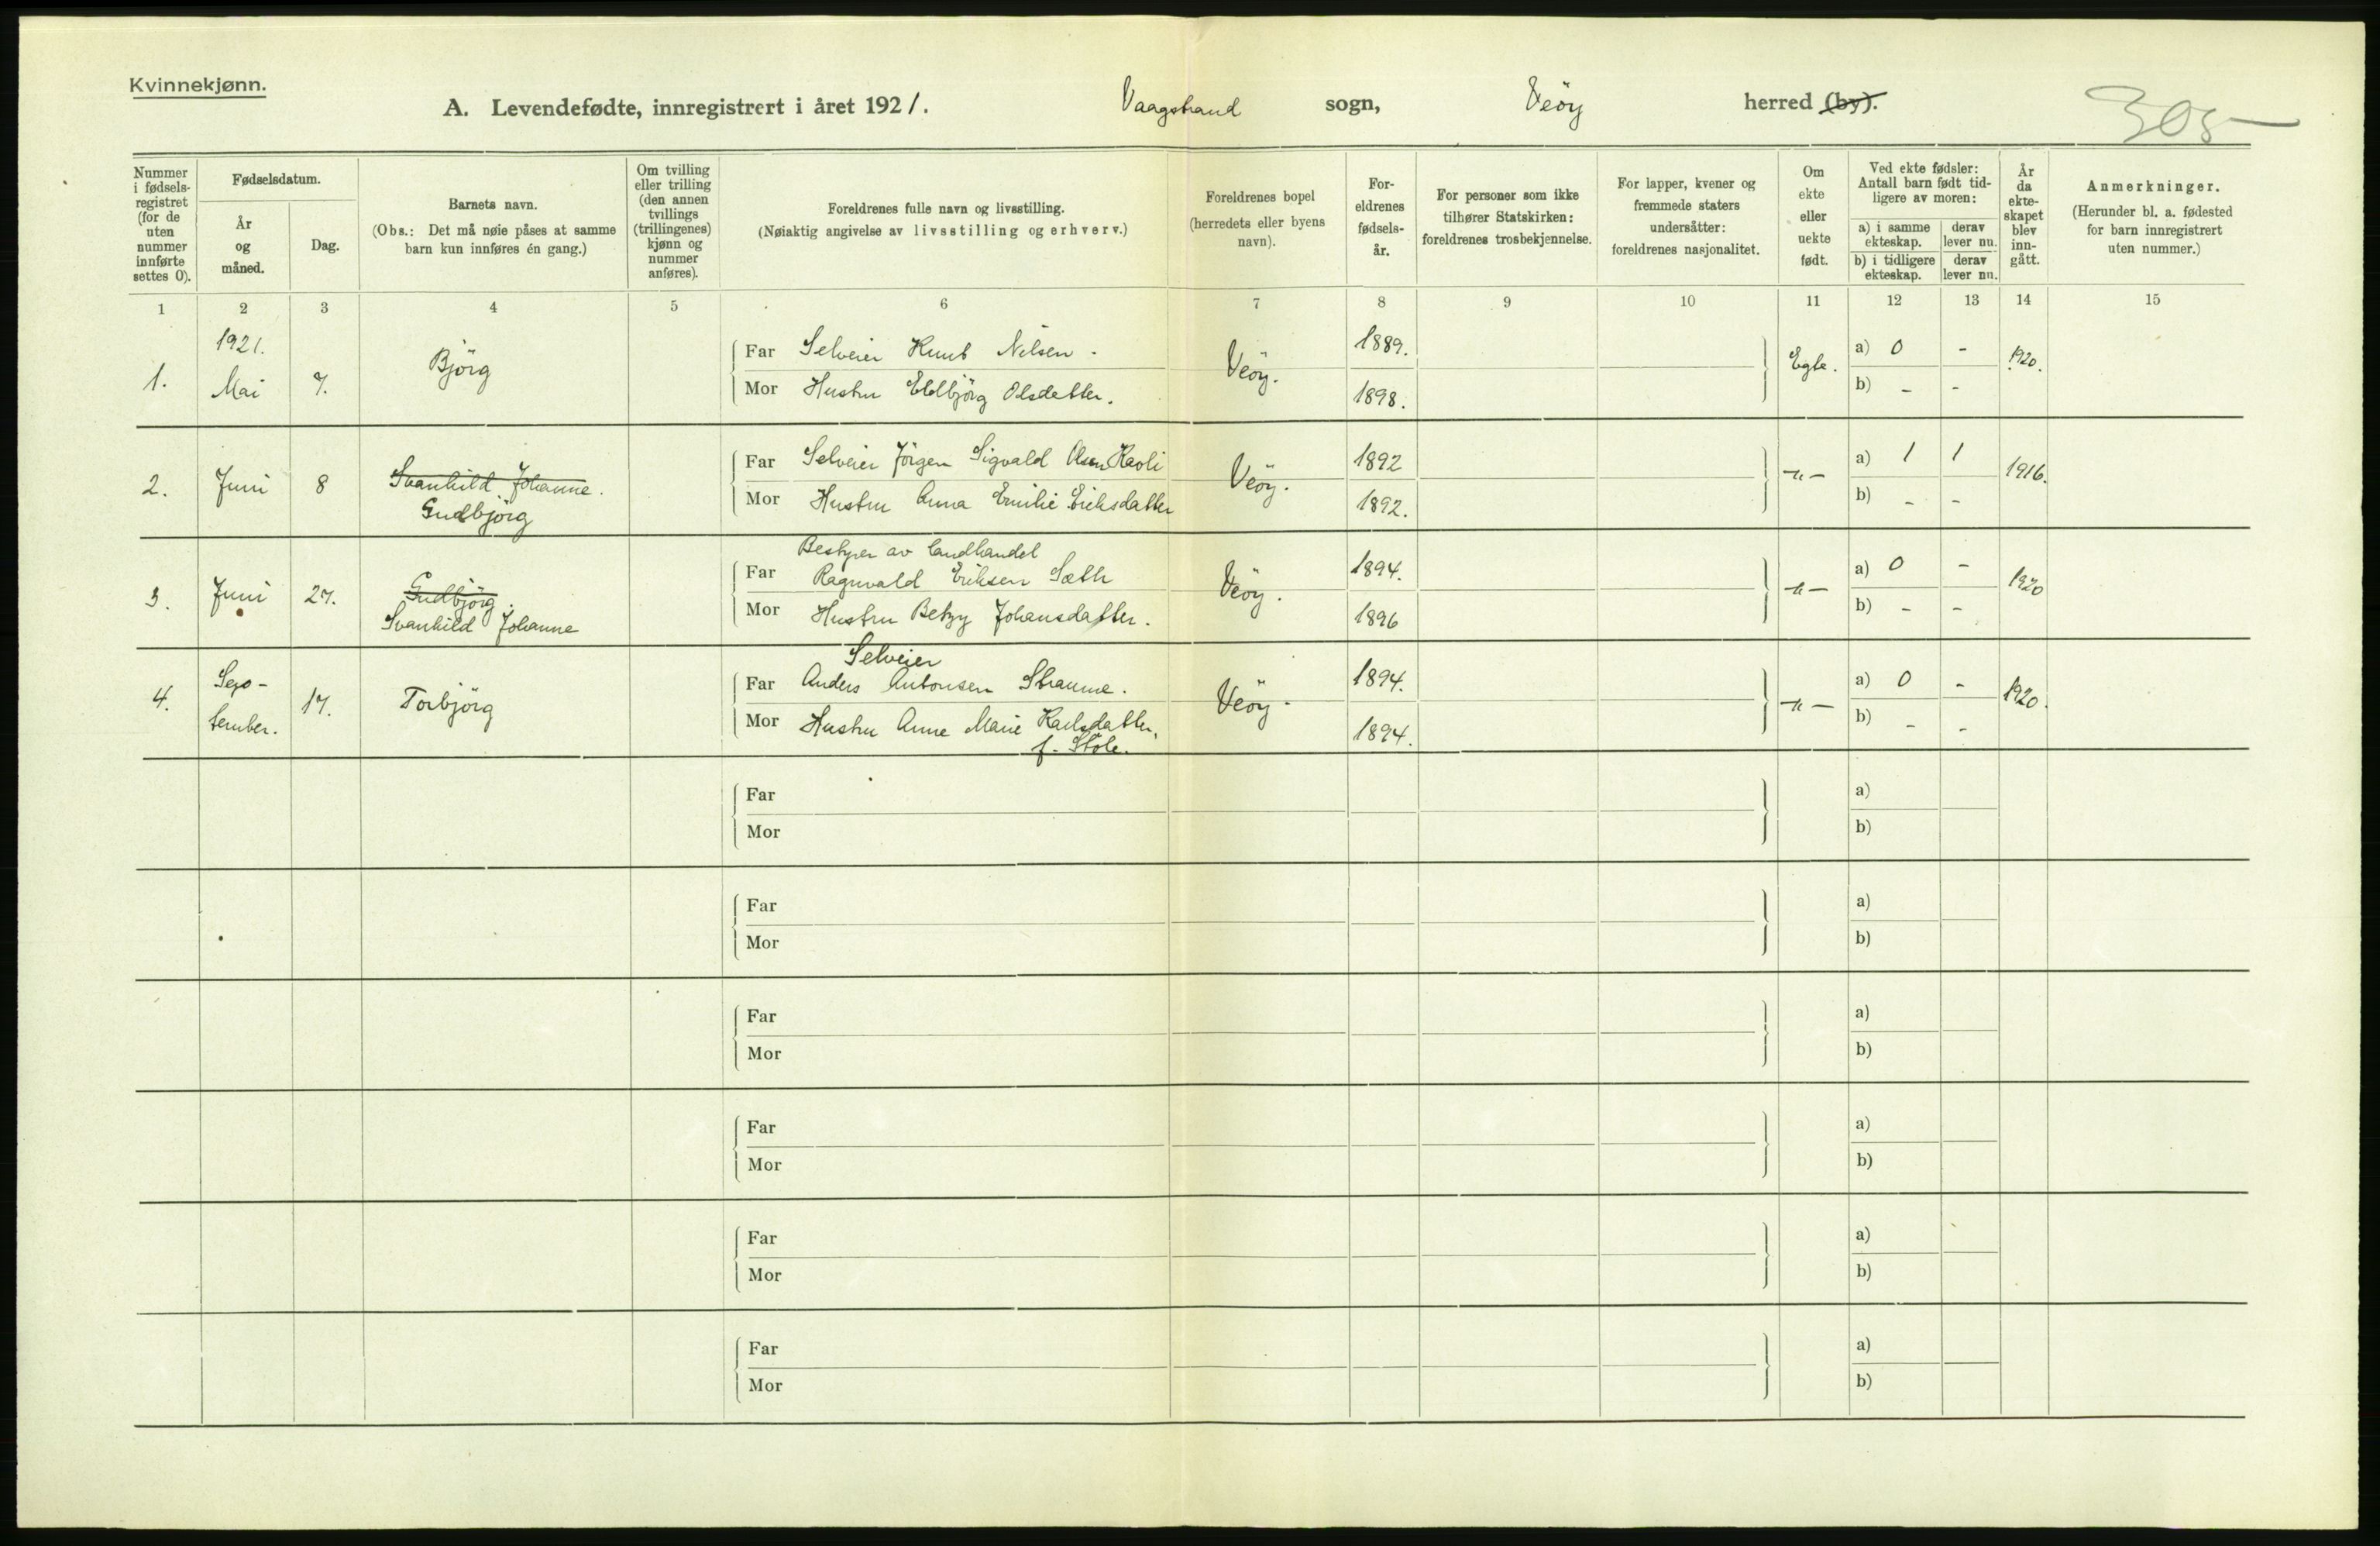 Kvinnekjønn.
A. Levendefødte, innregistrert i året 1921. Vaagstrand sogn, Veöy herred (by).
305
Nummer i fødsels-registret (for de uten nummer innførte settes 0).
Fødselsdatum.
År og måned.
Dag.
Barnets navn.
(Obs.: Det må nøie påses at samme barn kun innføres én gang.)
Om tvilling eller trilling (den annen tvillings (trillingenes) kjønn og nummer anføres).
Foreldrenes fulle navn og livsstilling.
(Nøiaktig angivelse av livsstilling og erhverv.)
Foreldrenes bopel (herredets eller byens navn).
For-eldrenes fødsels-år.
For personer som ikke tilhører Statskirken: foreldrenes trosbekjennelse.
For lapper, kvener og fremmede staters undersåtter: foreldrenes nasjonalitet.
Om ekte eller uekte født.
Ved ekte fødsler: Antall barn født tid-ligere av moren:
a) i samme ekteskap. derav lever nu.
b) i tidligere ekteskap. derav lever nu.
År da ekte-skapet blev inn-gått.
Anmerkninger.
(Herunder bl. a. fødested for barn innregistrert uten nummer.)
1 2 3 4 5 6 7 8 9 10 11 12 13 14 15
1. 1921. Mai 7. Björg
Far Selveier Knut Nilsen. Veöy. 1889. Egte. a) 0 - 1920.
Mor Hustru Eldbjörg Olsdatter. 1898. b) - -
2. Juni 8 Svanhild Johanne.
Gudbjörg
Far Selveier Jörgen Sigvald Olsen Kavli Veöy. 1892 -"- a) 1 1 1916.
Mor Hustru Anna Emilie Eriksdatter 1892. b) - -
3. Juni 27. Gudbjörg.
Svanhild Johanne
Bestyrer av landhandel
Far Ragnvald Eriksen Sæth Veöy. 1894. -"- a) 0 - 1920
Mor Hustru Betzy Johansdatter. 1896 b) - -
4. Sep-tember. 17. Torbjörg
Selveier
Far Anders Antonsen Straume. Veöy. 1894. -"- a) 0 - 1920.
Mor Hustru Anne Marie Karlsdatter, 1894. b) - -
f. Stöle.
Far a)
Mor b)
Far a)
Mor b)
Far a)
Mor b)
Far a)
Mor b)
Far a)
Mor b)
Far a)
Mor b)